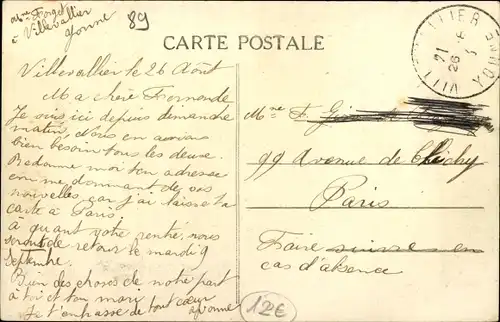 Mme Forget
à Villevallier
Yonne
89
CARTE POSTALE
VILLEVALLIER
YONNE
21
26
Villevallier le 26 Août
Ma chère Fernande
Je suis ici depuis dimanche
matin, Nous en avons
bien besoin tous les deux.
Redonne moi ton adresse
en me donnant de vos
nouvelles, car j'ai laissé ta
carte à Paris.
à quant votre rentré, nous
seront de retour le mardi 9
Septembre.
Bien des choses de notre part
à toi et ton mari
Je t'embrasse de tout cœur
Yvonne
Mme F.
99 Avenue de Clichy
Paris
Faire suivre en
cas d'absence
12€